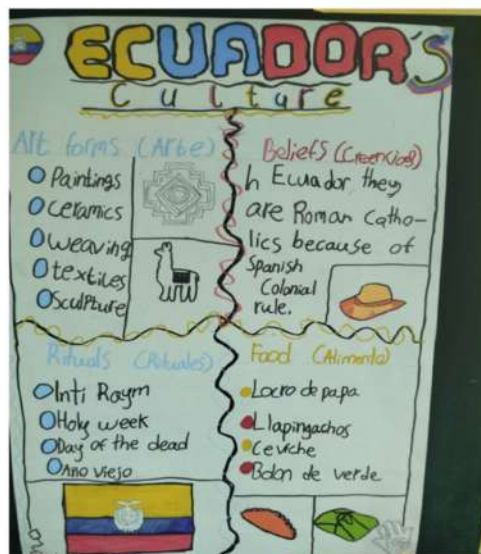 ECUADOR'S
Culture
Art forms (Arte)
Paintings
Ceramics
weaving
textiles
Sculpture
Beliefs (Creencias)
In Ecuador they
are Roman Catho-
lics because of
Spanish
Colonial
rule.
Rituals (Rituales)
Inti Raym
Holy week
Day of the dead
Ano viejo
Food (Alimento)
Locro de papa
Llapingachos
Ceviche
Bolon de verde